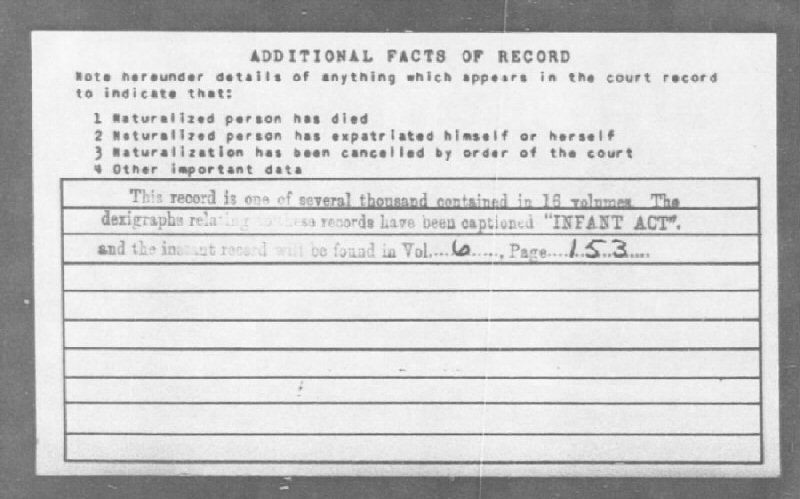 ADDITIONAL FACTS OF RECORD
Note hereunder details of anything which appears in the court record
to indicate that:
1 Naturalized person has died
2 Naturalized person has expatriated himself or herself
3 Naturalization has been cancelled by order of the court
4 Other important data
This record is one of several thousand contained in 16 volumes. The
dexigraphs relating to these records have been captioned "INFANT ACT".
and the instant record will be found in Vol....6....., Page....153....